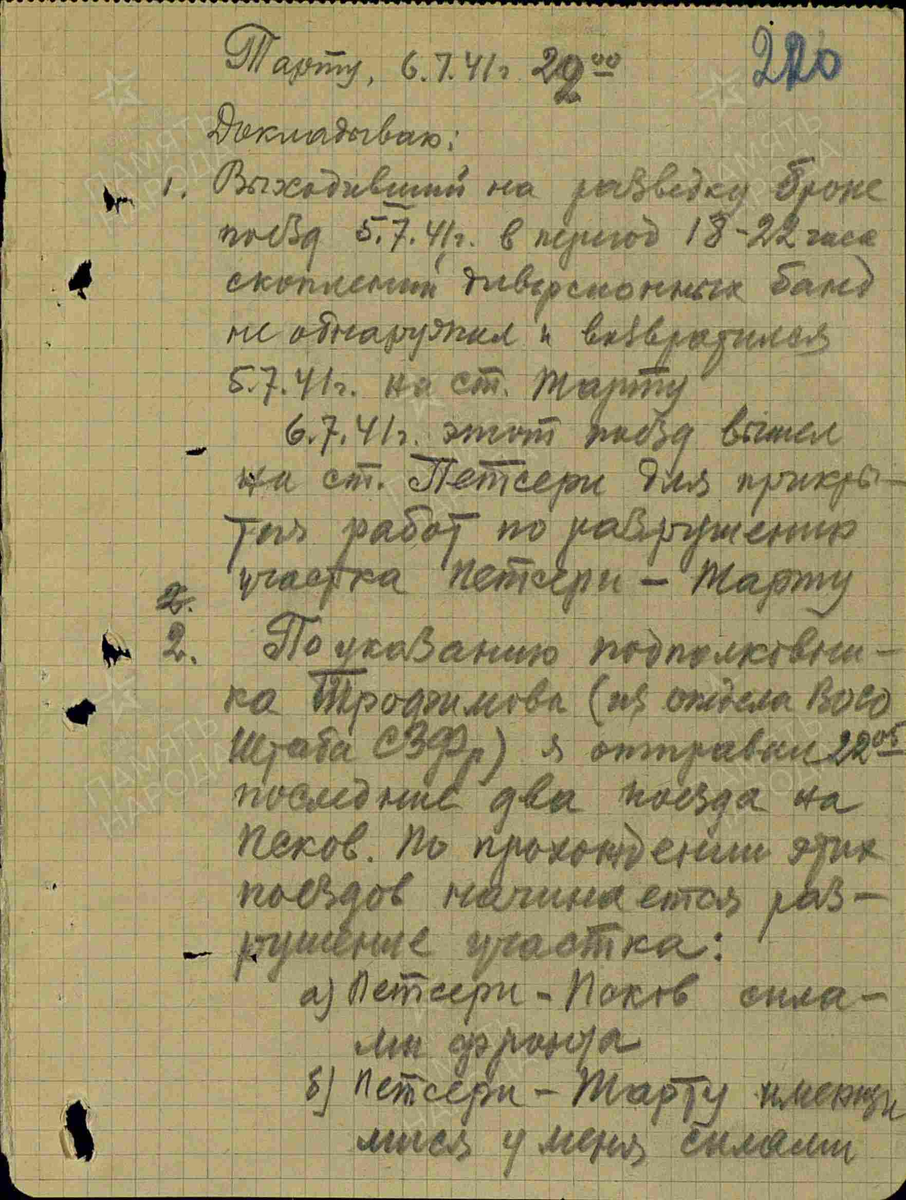 Тарту, 6.7.41г 22⁰⁰
220
Докладываю:
1. Выходивший на разведку броне
поезд 5.7.41г. в период 18-22 часа
скоплений диверсионных банд
не обнаружил и возвратился
5.7.41г. на ст. Тарту
6.7.41г. этот поезд вышел
на ст. Петсери для прикры-
тия работ по разрушению
участка Петсери - Тарту
2.
2. По указанию подполковни-
ка Трофимова (из отдела ВОСО
штаба СЗФр) я отправил 22⁰⁵
последние два поезда на
Псков. По прохождении этих
поездов начинается раз-
рушение участка:
а) Петсери - Псков сила-
ми фронта
б) Петсери - Тарту имеющи
мися у меня силами
ПАМЯТЬ
НАРОДА